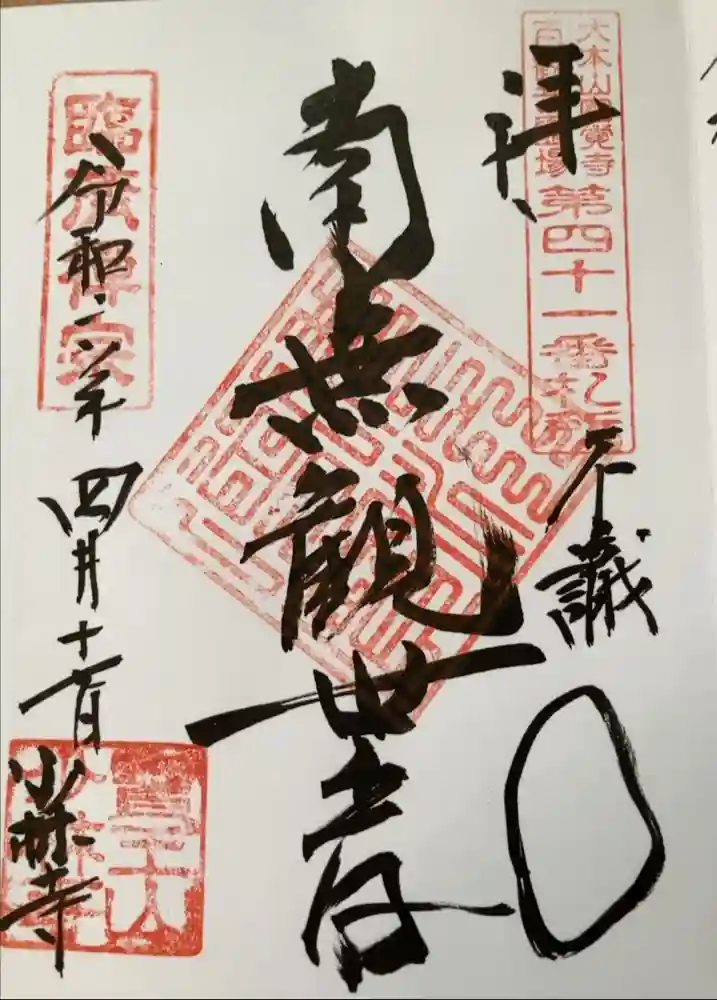 拝
大本山圓覚寺
百観音霊場
第四十一番札所
不識
南無観世音
臨済禅宗
令和二年
四月十一日
少林寺